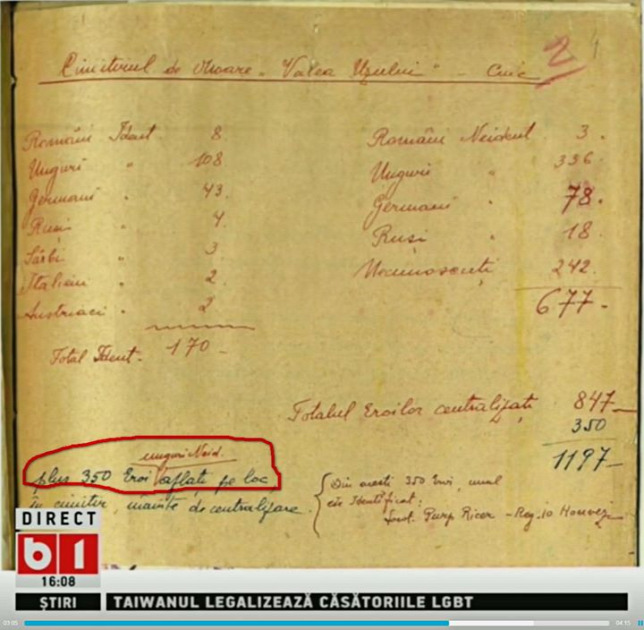 2
Cimitirul de Onoare "Valea Uzului" - Ciuc
Români Ident 8.
Unguri " 108
Germani " 43.
Ruși " 4
Sârbi " 3
Italieni " 2.
Austrieci " 2
Total Ident. 170
Români Neident 3.
Unguri " 336
Germani " 78.
Ruși " 18.
Necunoscuți 242.
677.
Totalul Eroilor centralizați 847
350
1197
unguri Neid.
plus 350 Eroi aflați pe loc
în cimitir, înainte de centralizare.
Din acești 350 Eroi, unul
este Identificat:
Reg. 10 Honvezi
DIRECT
b1
16:08
ȘTIRI TAIWANUL LEGALIZEAZĂ CĂSĂTORIILE LGBT